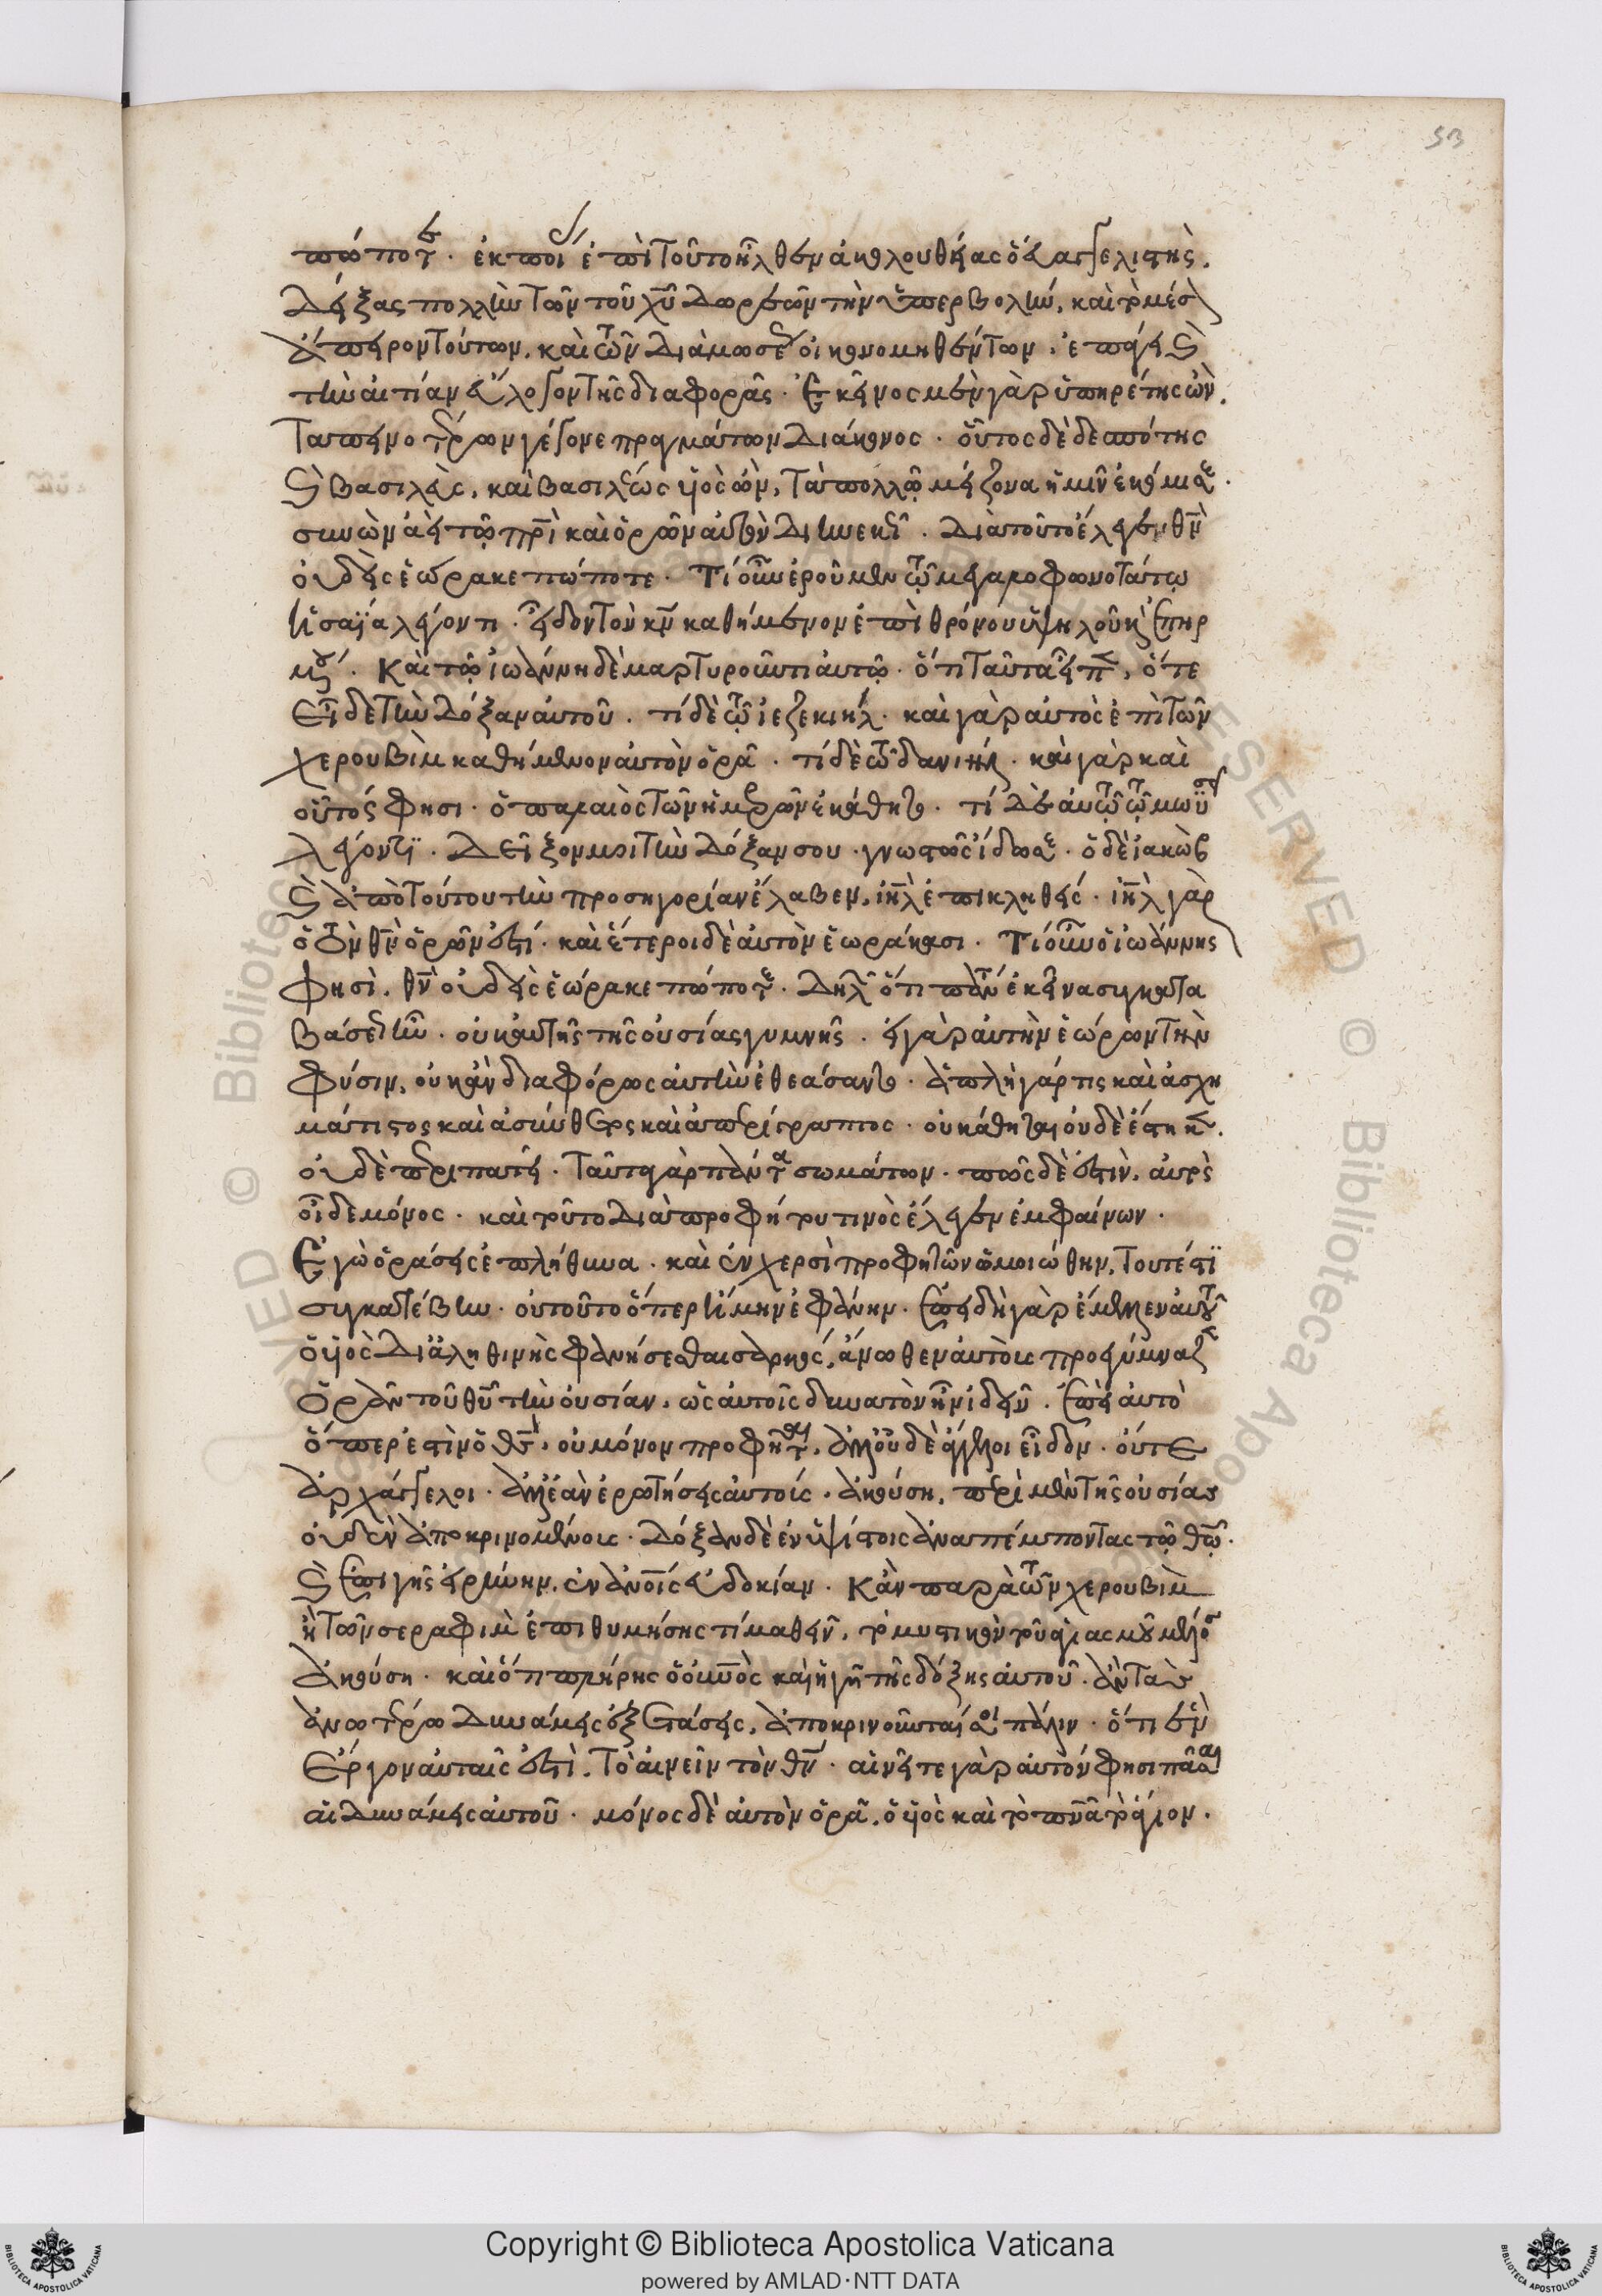 53
πώποτε. ἐκ ποίας ἐπὶ τοῦτο ἦλθεν ἀκολουθίας ὁ εὐαγγελιστής.
δείξας πολλὴν τῶν τοῦ χυ δωρεῶν τὴν ὑπερβολὴν, καὶ τὸ μέσον
ἄπειρον τούτων, καὶ τῶν διὰ μωσέως οἰκονομηθέντων, ἐπάγει καὶ
τὴν αἰτίαν εὔλογον τῆς διαφορᾶς. Ἐκεῖνος μὲν γὰρ ὑπηρέτης ὢν,
ταπεινοτέρων γέγονε πραγμάτων διάκονος. οὗτος δὲ δεσπότης
καὶ βασιλεὺς, καὶ βασιλέως υἱὸς ὢν, τὰ πολλῷ μείζονα ἡμῖν ἐκόμισε.
συνὼν ἀεὶ τῷ πρὶ καὶ ὁρῶν αὐτὸν διηνεκῶς. διὰ τοῦτο ἔλεγεν θν
οὐδεὶς ἑώρακε πώποτε. Τί οὖν ἐροῦμεν τῷ μεγαλοφωνοτάτῳ
ἡσαΐα λέγοντι. εἶδον τὸν κν καθήμενον ἐπὶ θρόνου ὑψηλοῦ καὶ ἐπηρ
μένου. Καὶ τῷ ἰωάννη δὲ μαρτυροῦντι αὐτῷ. ὅτι ταῦτα εἶπεν, ὅτε
εἶδε τὴν δόξαν αὐτοῦ. τί δὲ τῷ ἰεζεκιήλ. καὶ γὰρ αὐτὸς ἐπὶ τῶν
χερουβὶμ καθήμενον αὐτὸν ὁρᾶ. τί δὲ τῷ δανιήλ. καὶ γὰρ καὶ
οὗτός φησι. ὁ παλαιὸς τῶν ἡμερῶν ἐκάθητο. τί δὲ αὐτῷ τῷ μωϋσῆ
λέγοντϊ. Δεῖξον μοι τὴν δόξαν σου. γνωστῶς ἴδω σε. ὁ δὲ ἰακὼβ
καὶ ἀπὸ τούτου τὴν προσηγορίαν ἔλαβεν, ιηλ ἐπικληθείς. ιηλ γὰρ
ὁ τὸν θν ὁρῶν ἐστί. καὶ ἕτεροι δὲ αὐτὸν ἑωράκασι. Τί οὖν ὁ ἰωάννης
φησὶ. θν οὐδεὶς ἑώρακε πώποτε. Δηλῶν ὅτι πάντα ἐκεῖνα συγκατα
βάσεως ἦν. οὐκ αὐτῆς τῆς οὐσίας γυμνῆς. εἰ γὰρ αὐτὴν ἑώρων τὴν
φύσιν, οὐκ ἂν διαφόρως αὐτὴν ἐθεάσαντο. ἁπλὴ γάρ τις καὶ ἀσχη
μάτιστος καὶ ἀσύνθετος καὶ ἀπερίγραπτος. οὐ κάθηται οὐδὲ ἕστηκεν.
οὐδὲ περιπατεῖ. ταῦτα γὰρ πάντα σωμάτων. πῶς δὲ ἐστὶν, αὐτὸς
οἶδε μόνος. καὶ τοῦτο διὰ προφήτου τινὸς ἔλεγεν ἐμφαίνων.
Ἐγὼ ὁράσεις ἐπλήθυνα. καὶ ἐν χερσὶ προφητῶν ὡμοιώθην, τουτέστϊ
συγκατέβην. οὐ τοῦτο ὅπερ ἤμην ἐφάνην. ἐπειδὴ γὰρ ἔμελλεν αὐτοῦ
ὁ υἱὸς δι ἀληθινῆς φανήσεσθαι σαρκὸς, ἄνωθεν αὐτοὺς προεγύμναζεν
ὁρᾶν τοῦ θυ τὴν οὐσίαν, ὡς αὐτοῖς δυνατὸν ἦν ἰδεῖν. ἐπεὶ αὐτὸ
ὅπερ ἐστὶν ὁ θς, οὐ μόνον προφῆται, ἀλλ οὐδὲ ἄγγελοι εἶδον. οὔτε
ἀρχάγγελοι. ἀλλ ἐὰν ἐρωτήσης αὐτοὺς. ἀκούση, περὶ μὲν τῆς οὐσίας
οὐδὲν ἀποκρινομένους. δόξαν δὲ ἐν ὑψίστοις ἀναπέμποντας τῷ θῶ.
καὶ ἐπὶ γῆς εἰρήνην, ἐν ἀνοις εὐδοκίαν. Κἂν παρὰ τῶν χερουβὶμ
ἢ τῶν σεραφὶμ ἐπιθυμήσης τί μαθεῖν, τὸ μυστικὸν τοῦ ἁγιασμοῦ μέλος
ἀκούση. καὶ ὅτι πλήρης ὁ οὐνος καὶ ἡ γῆ τῆς δόξης αὐτοῦ. ἂν τὰς
ἀνωτέρω δυνάμεις ἐξετάσης, ἀποκρινοῦνταί σοι πάλιν. ὅτι ἓν
ἔργον αὐταῖς ἐστὶ. τὸ αἰνεῖν τὸν θν. αἰνεῖτε γὰρ αὐτόν φησι πᾶσαι
αἱ δυνάμεις αὐτοῦ. μόνος δὲ αὐτὸν ὁρᾶ, ὁ υἱὸς καὶ τὸ πνα τὸ ἅγιον.
Copyright © Biblioteca Apostolica Vaticana
powered by AMLAD·NTT DATA